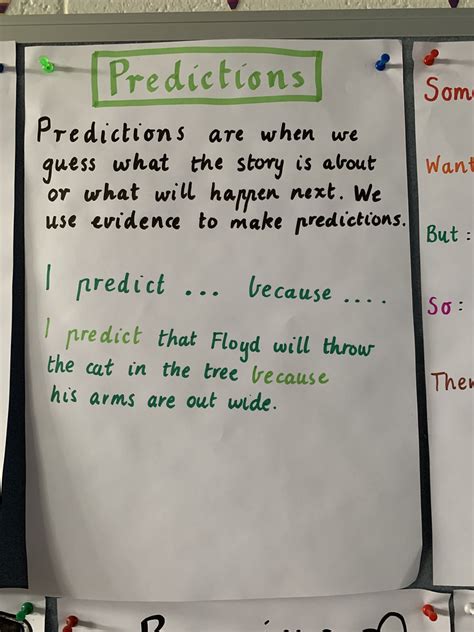 Predictions
Predictions are when we
guess what the story is about
or what will happen next. We
use evidence to make predictions.
I predict ... because ....
I predict that Floyd will throw
the cat in the tree because
his arms are out wide.
Som
Want
But :
So :
Then